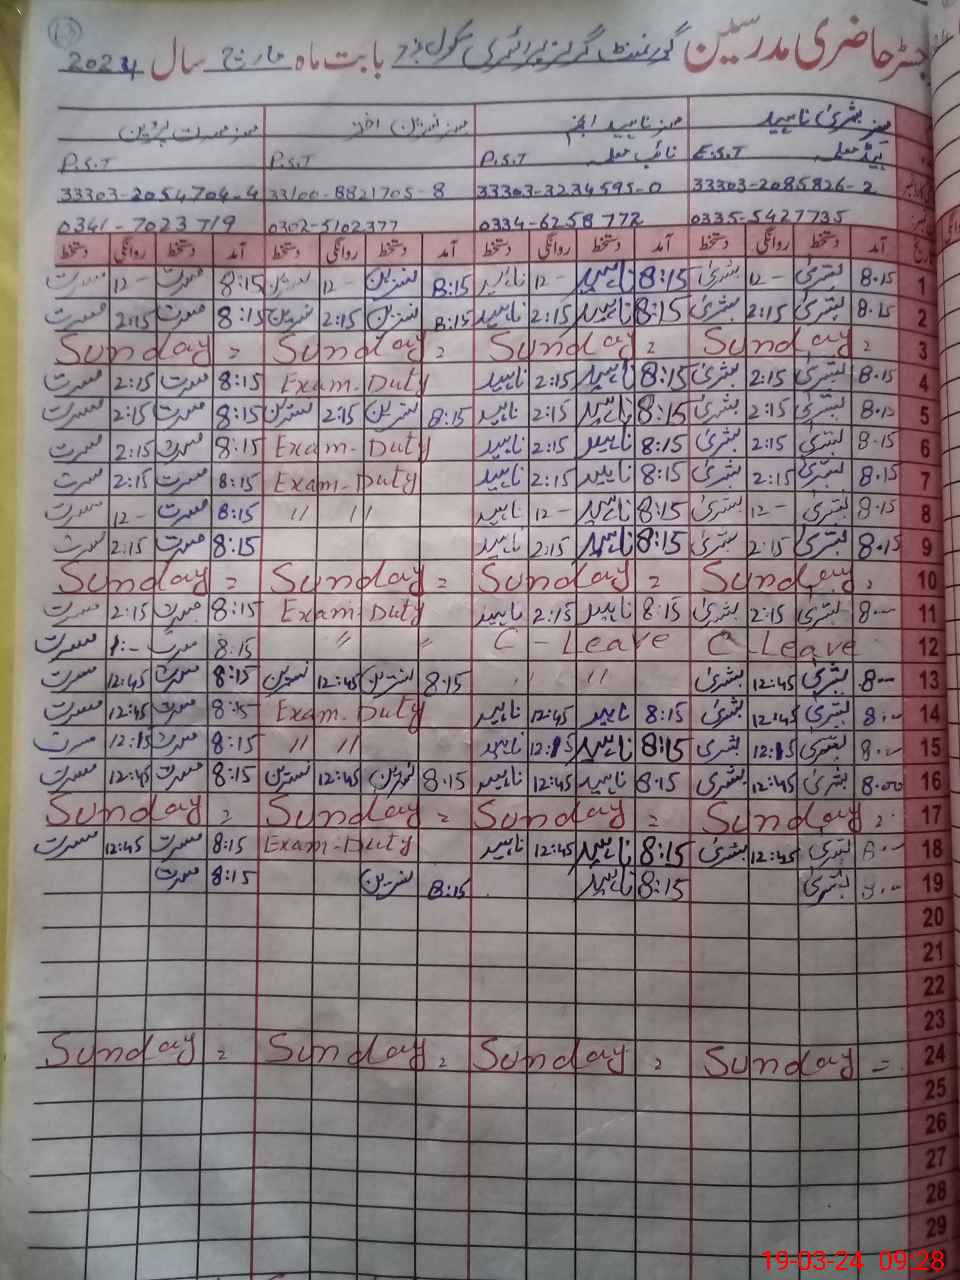 رجسٹر حاضری مدرسین گورنمنٹ گرلز پرائمری سکول بابت ماہ مارچ سال 2024
مسز بشریٰ ناہید مسز ناہید انجم مسز نسرین اختر مسز مسرت پروین
ہیڈ معلمہ E.S.T نائب معلمہ P.S.T P.S.T P.S.T
33303-2085826-2 33303-3234595-0 33100-8821705-8 33303-2054704-4
0335-5427735 0334-6258772 0302-5102377 0341-7023719
تاریخ آمد دستخط روانگی دستخط آمد دستخط روانگی دستخط آمد دستخط روانگی دستخط آمد دستخط روانگی دستخط
1 8.15 بشریٰ 12- بشریٰ 8:15 ناہید 12- ناہید 8:15 نسرین 12- نسرین 8:15 مسرت 12- مسرت
2 8.15 بشریٰ 2:15 بشریٰ 8:15 ناہید 2:15 ناہید 8:15 نسرین 2:15 نسرین 8:15 مسرت 2:15 مسرت
3 Sunday = Sunday = Sunday = Sunday =
4 8.15 بشریٰ 2:15 بشریٰ 8:15 ناہید 2:15 ناہید Exam. Duty 8:15 مسرت 2:15 مسرت
5 8.15 بشریٰ 2:15 بشریٰ 8:15 ناہید 2:15 ناہید 8:15 نسرین 2:15 نسرین 8:15 مسرت 2:15 مسرت
6 8.15 بشریٰ 2:15 بشریٰ 8:15 ناہید 2:15 ناہید Exam. Duty 8:15 مسرت 2:15 مسرت
7 8.15 بشریٰ 2:15 بشریٰ 8:15 ناہید 2:15 ناہید Exam. Duty 8:15 مسرت 2:15 مسرت
8 8.15 بشریٰ 12- بشریٰ 8:15 ناہید 12- ناہید // // 8:15 مسرت 12- مسرت
9 8.15 بشریٰ 2:15 بشریٰ 8:15 ناہید 2:15 ناہید 8:15 مسرت 2:15 مسرت
10 Sunday = Sunday = Sunday = Sunday =
11 8.-- بشریٰ 2:15 بشریٰ 8:15 ناہید 2:15 ناہید Exam. Duty 8:15 مسرت 2:15 مسرت
12 C-Leave C-Leave // // 8:15 مسرت مسرت
13 8.-- بشریٰ 12:45 بشریٰ // // 8.15 نسرین 12:45 نسرین 8:15 مسرت 12:45 مسرت
14 8.-- بشریٰ 12:45 بشریٰ 8:15 ناہید 12:45 ناہید Exam. Duty 8:15 مسرت 12:45 مسرت
15 8.-- بشریٰ 12:15 بشریٰ 8:15 ناہید 12:15 ناہید // // 8:15 مسرت 12:15 مسرت
16 8.00 بشریٰ 12:45 بشریٰ 8.15 ناہید 12:45 ناہید 8.15 نسرین 12:45 نسرین 8:15 مسرت 12:45 مسرت
17 Sunday = Sunday = Sunday = Sunday =
18 8.-- بشریٰ 12:45 بشریٰ 8:15 ناہید 12:45 ناہید Exam. Duty 8:15 مسرت 12:45 مسرت
19 8.-- بشریٰ 8:15 ناہید 8:15 نسرین 8:15 مسرت
20
21
22
23
24 Sunday = Sunday = Sunday = Sunday =
25
26
27
28
29
19-03-24 09:28